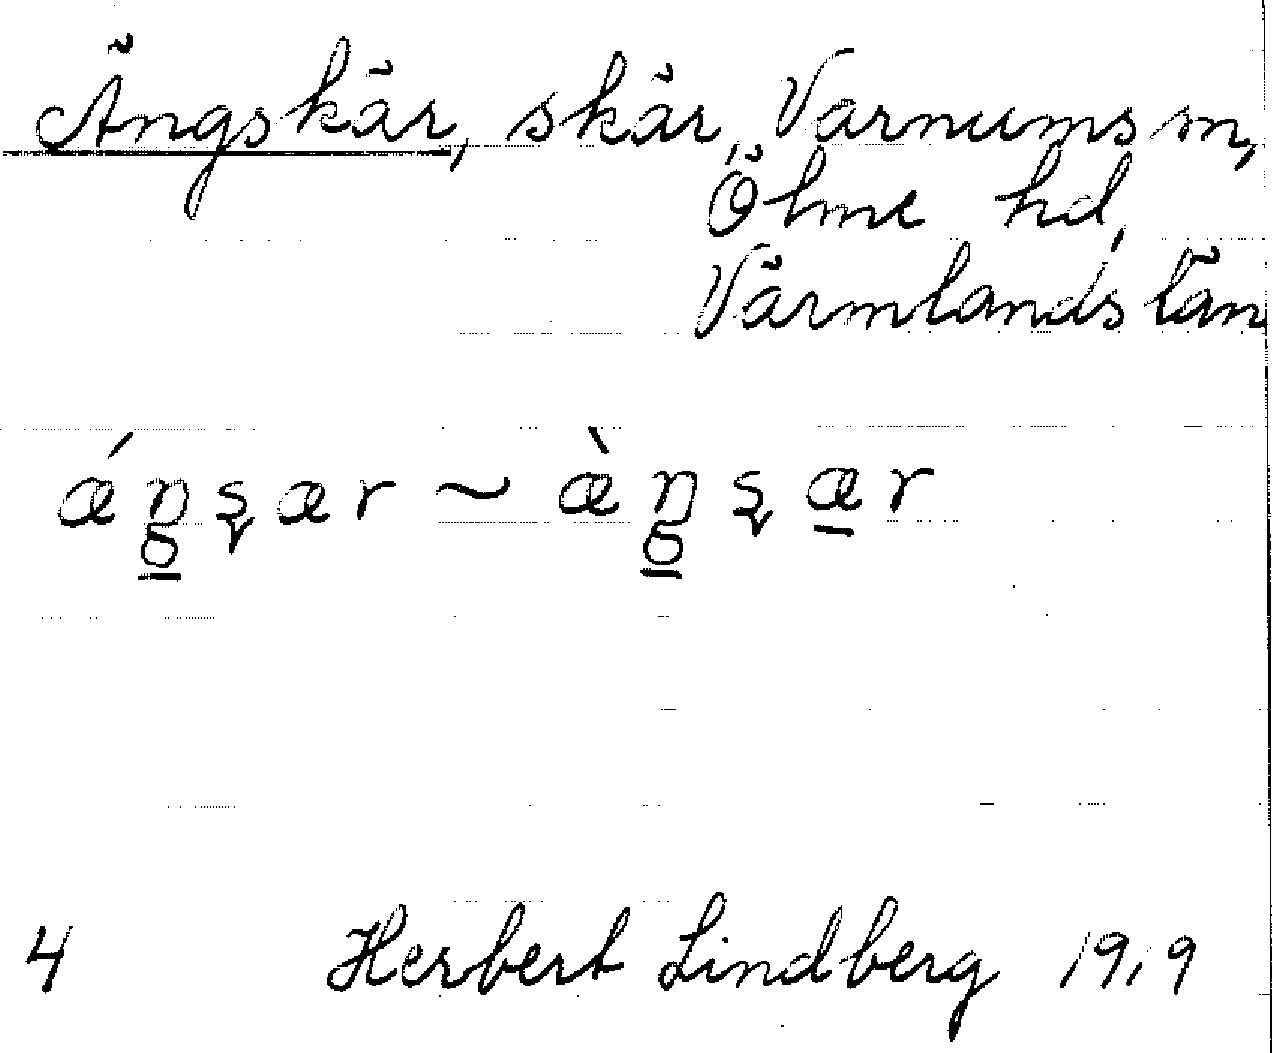 Ängskär, skär, Varnums sn,
Ölme hd,
Värmlands län
ǽŋ̱ʂær ~ æ̀ŋ̱ʂæ̱r
4 Herbert Lindberg 1919